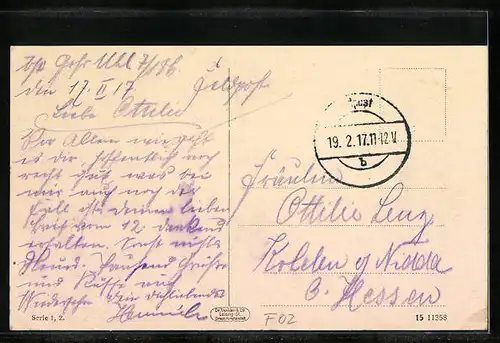 den 17. II 17. Feldpost
Liebe Ottilie
Vor Allem wie geht
es dir, hoffentlich noch
recht gut, was bei
mir auch noch der
Fall ist. deinen lieben
Brief vom 12 dankend
erhalten. Sonst nichts
Neues. Tausend Grüße
und Küsse auf
Wiedersehn Dein dichliebender
Heinrich
Serie 1, 2.
19. 2. 17. 11-12 V.
b
Fräulein
Ottilie Lenz
Nidda
Hessen
F02
15 11358